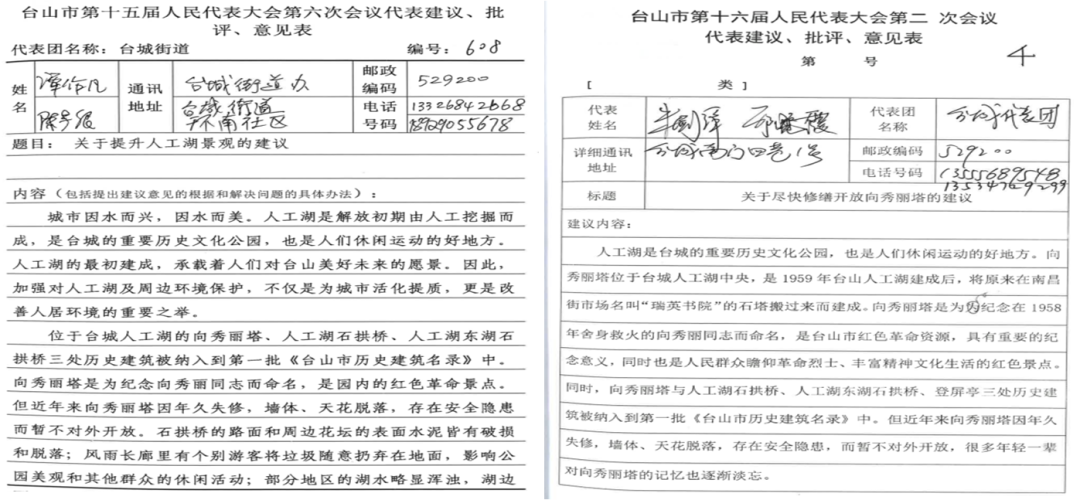 台山市第十五届人民代表大会第六次会议代表建议、批
评、意见表
代表团名称：台城街道
编号：608
姓名
谭作凡
通讯地址
台城街道办
邮政编码
529200
台城街道
环南社区
电话号码
13326842668
18929055678
题目：关于提升人工湖景观的建议
内容（包括提出建议意见的根据和解决问题的具体办法）：
城市因水而兴，因水而美。人工湖是解放初期由人工挖掘而
成，是台城的重要历史文化公园，也是人们休闲运动的好地方。
人工湖的最初建成，承载着人们对台山美好未来的愿景。因此，
加强对人工湖及周边环境保护，不仅是为城市活化提质，更是改
善人居环境的重要之举。
位于台城人工湖的向秀丽塔、人工湖石拱桥、人工湖东湖石
拱桥三处历史建筑被纳入到第一批《台山市历史建筑名录》中。
向秀丽塔是为纪念向秀丽同志而命名，是园内的红色革命景点。
但近年来向秀丽塔因年久失修，墙体、天花脱落，存在安全隐患
而暂不对外开放。石拱桥的路面和周边花坛的表面水泥皆有破损
和脱落；风雨长廊里有个别游客将垃圾随意扔弃在地面，影响公
园美观和其他群众的休闲活动；部分地区的湖水略显浑浊，湖边
台山市第十六届人民代表大会第二 次会议
代表建议、批评、意见表
第 号
4
[ 类]
代表姓名
代表团名称
台城代表团
详细通讯地址
台城南门四巷1号
邮政编码
529200
电话号码
标题
关于尽快修缮开放向秀丽塔的建议
建议内容：
人工湖是台城的重要历史文化公园，也是人们休闲运动的好地方。向
秀丽塔位于台城人工湖中央，是 1959 年台山人工湖建成后，将原来在南昌
街市场名叫“瑞英书院”的石塔搬过来而建成。向秀丽塔是为因纪念在 1958
年舍身救火的向秀丽同志而命名，是台山市红色革命资源，具有重要的纪
念意义，同时也是人民群众瞻仰革命烈士、丰富精神文化生活的红色景点。
同时，向秀丽塔与人工湖石拱桥、人工湖东湖石拱桥、登屏亭三处历史建
筑被纳入到第一批《台山市历史建筑名录》中。但近年来向秀丽塔因年久
失修，墙体、天花脱落，存在安全隐患，而暂不对外开放，很多年轻一辈
对向秀丽塔的记忆也逐渐淡忘。